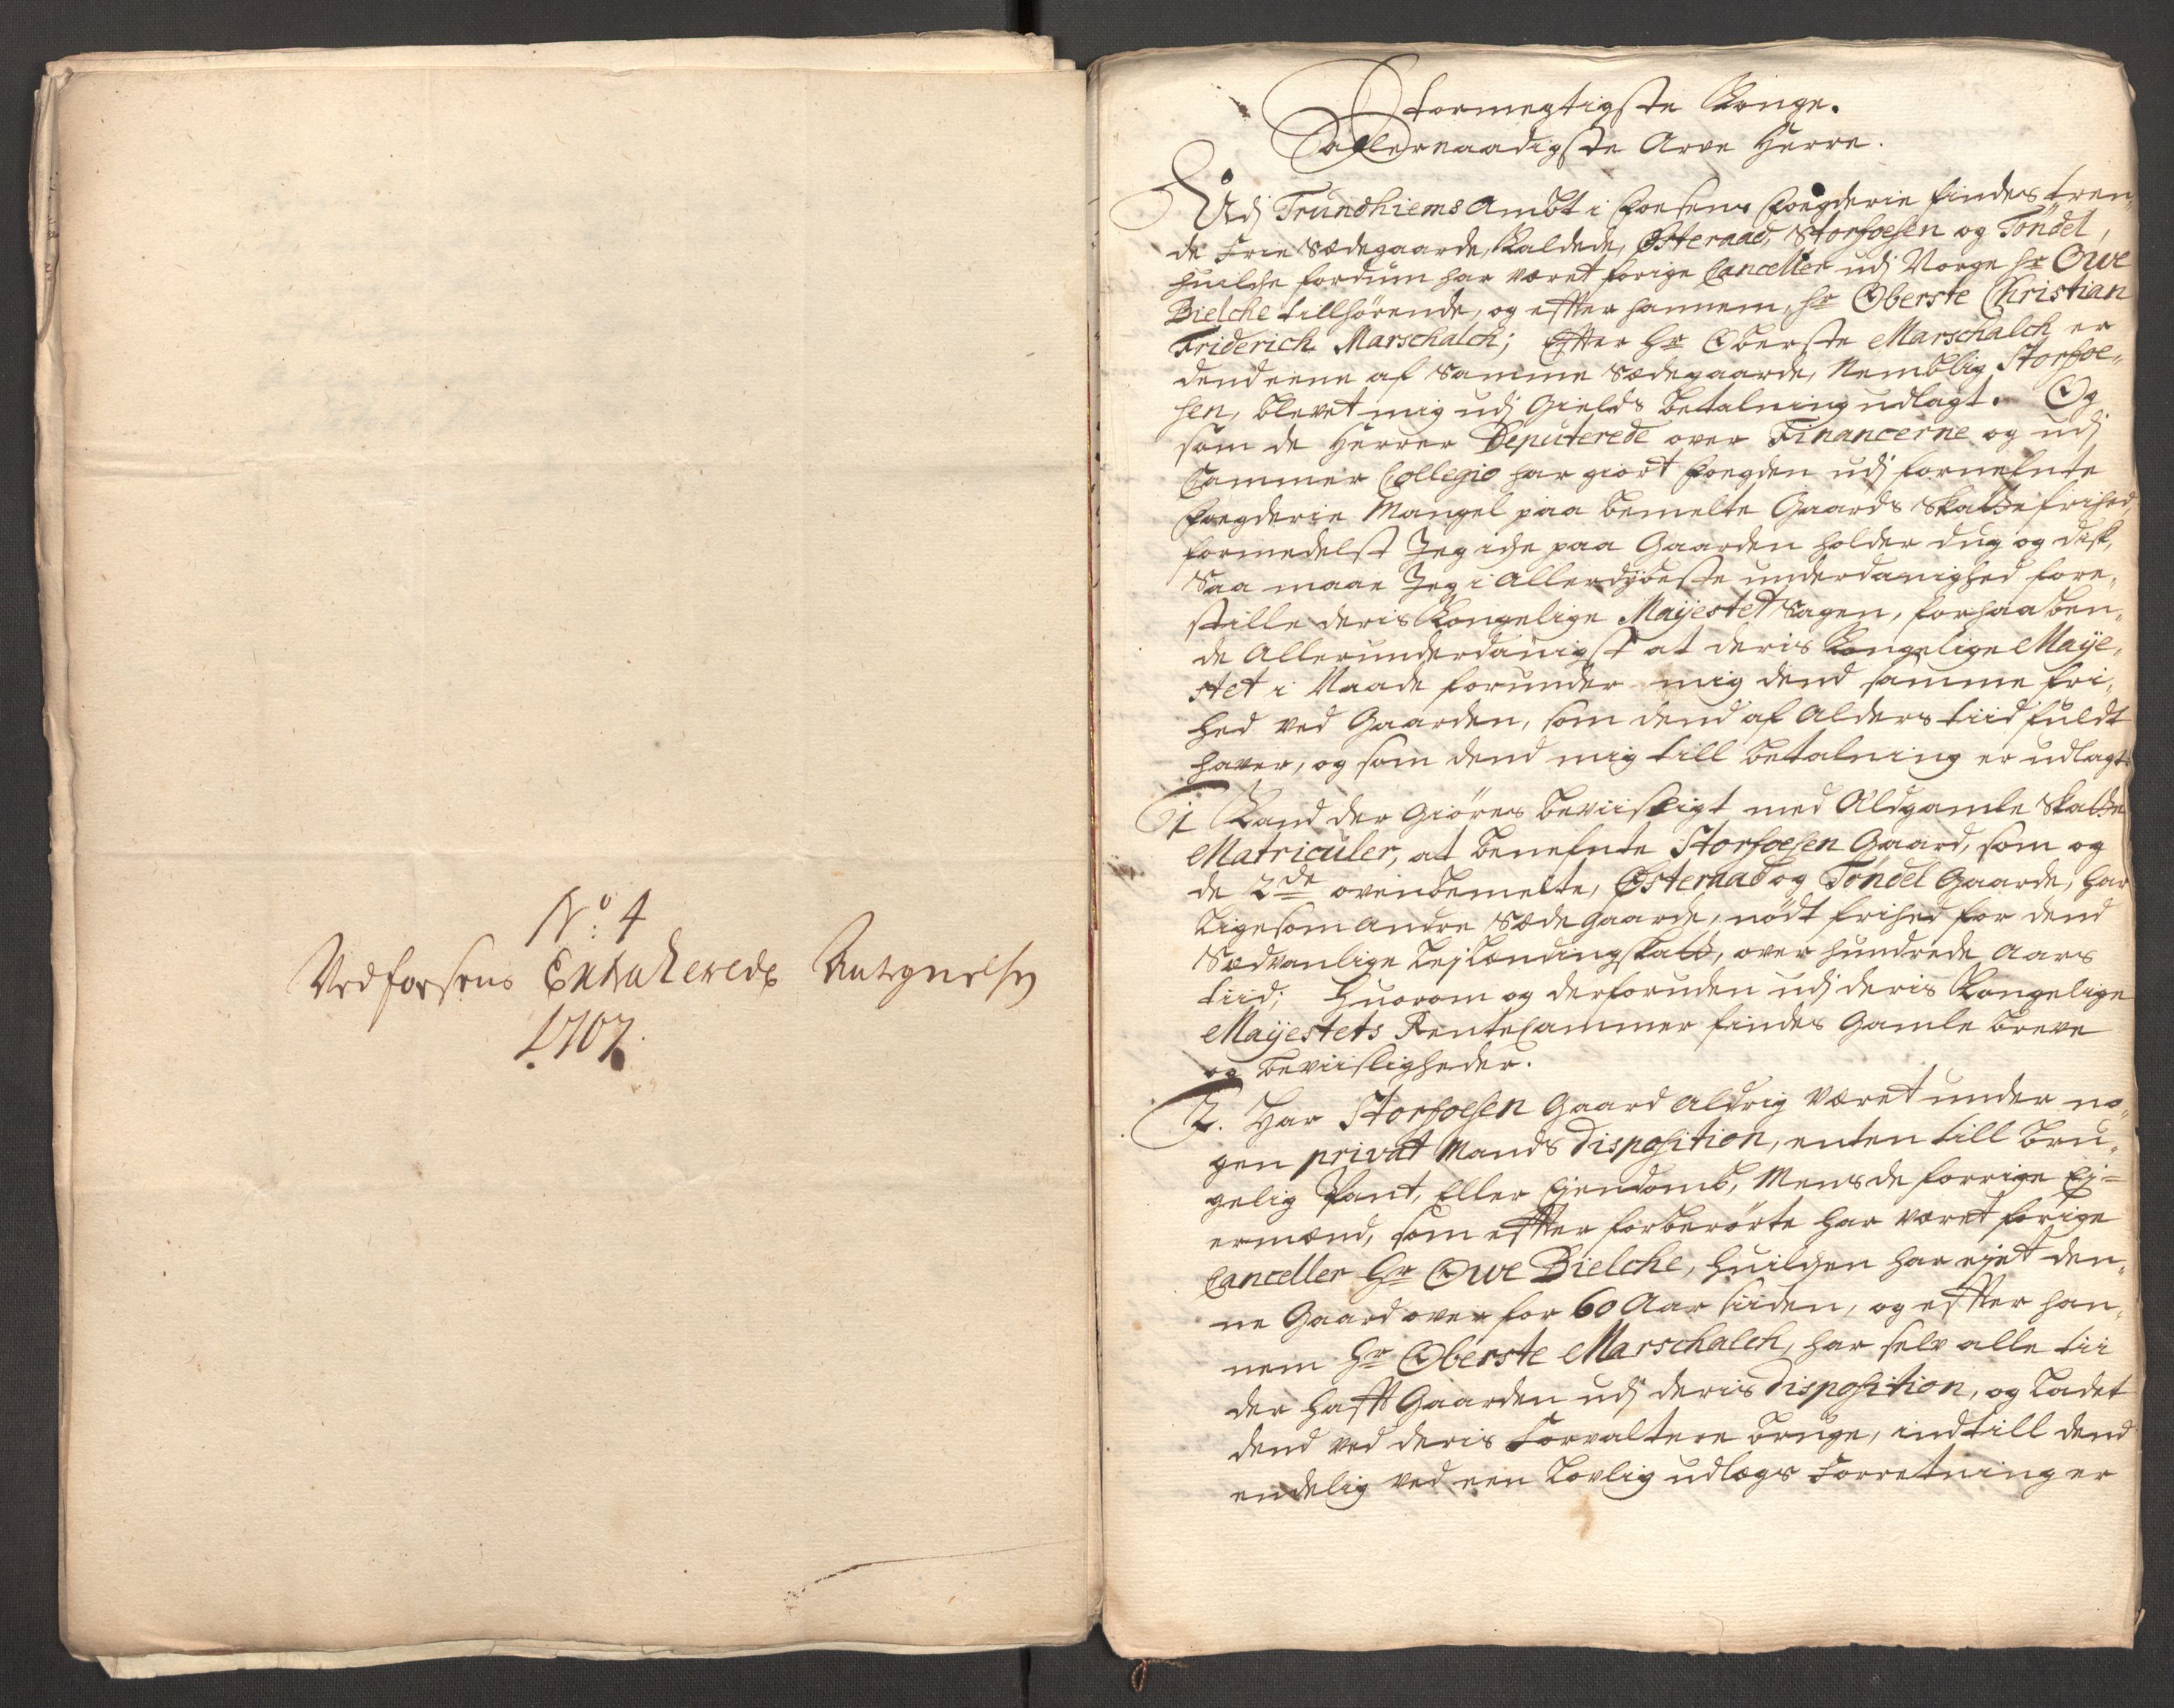 No: 4
Ved fosens Extraherede Antegnelser
1707.
Stormegtigste Konge.
Allernaadigste Arve Herre.
Udj Trundhiems Ambt i Foesens Foegderie findes tren,
de Frie Sædegaarde, Kaldede, Østeraad, Storfoesen og Tøndel,
huilche fordum har været forige Canceller udj Norge Hr Owe
Bielche tillhørende, og effter hannem, Hr Oberste Christian
Friderich Marschalch; Effter Hr Oberste Marschalch er
dend eene af samme Sædegaarde, Nemblig Storfoe-
sen, blevet mig udj Gields betalning udlagt. Og
som de Herrer Deputerede over Financerne og udj
Cammer Collegio har giort Foegden udj fornefnte
Foegderie Mangel paa bemelte Gaards Skatte frihed,
formedelst Jeg iche paa Gaarden holder dug og disk,
Saa maae Jeg i Allerdÿbeste underdanighed fore,
stille deris Kongelige Maÿestet Sagen, forhaaben,
de Allerunderdanigst at deris Kongelige Maÿe,
stet i Naade forunder mig dend samme fri,
hed ved Gaarden, som dend af Alders tiid fuldt
haver, og som dend mig till betalning er udlagt.
1 Kand der giøres beviisligt med Ældgamle Skatte
Matriculer, at benefnte Storfoesen Gaard, som og
de 2de ovenbemelte, Østeraad og Tøndel Gaarde, har
Ligesom andre Sæde Gaarde, nødt frihed for dend
Sædvanlige Lejlændingskatt, over hundrede Aars
tiid; Huorom og derforuden udj deris Kongelige
Maÿestets RenteCammer findes Gamle breve
og beviisligheder.
2. Har Storfoesen Gaard aldrig været under no,
gen privat Mands disposition, enten till bru,
gelig Pant, Eller Ejendomb, Mens de forrige Ej=
ermænd, som effter forberørte har været forige
Canceller Hr Owe Bielche, huilchen har ejet den,
ne Gaard over for 60 Aar siiden, og effter han,
nem Hr Oberste Marschalch, har selv alle tii
der hafft Gaarden udj deris disposition, og ladet
dend ved deris Forvaltere bruge, indtill dend
endelig ved een Lovlig udlægs Forretning er